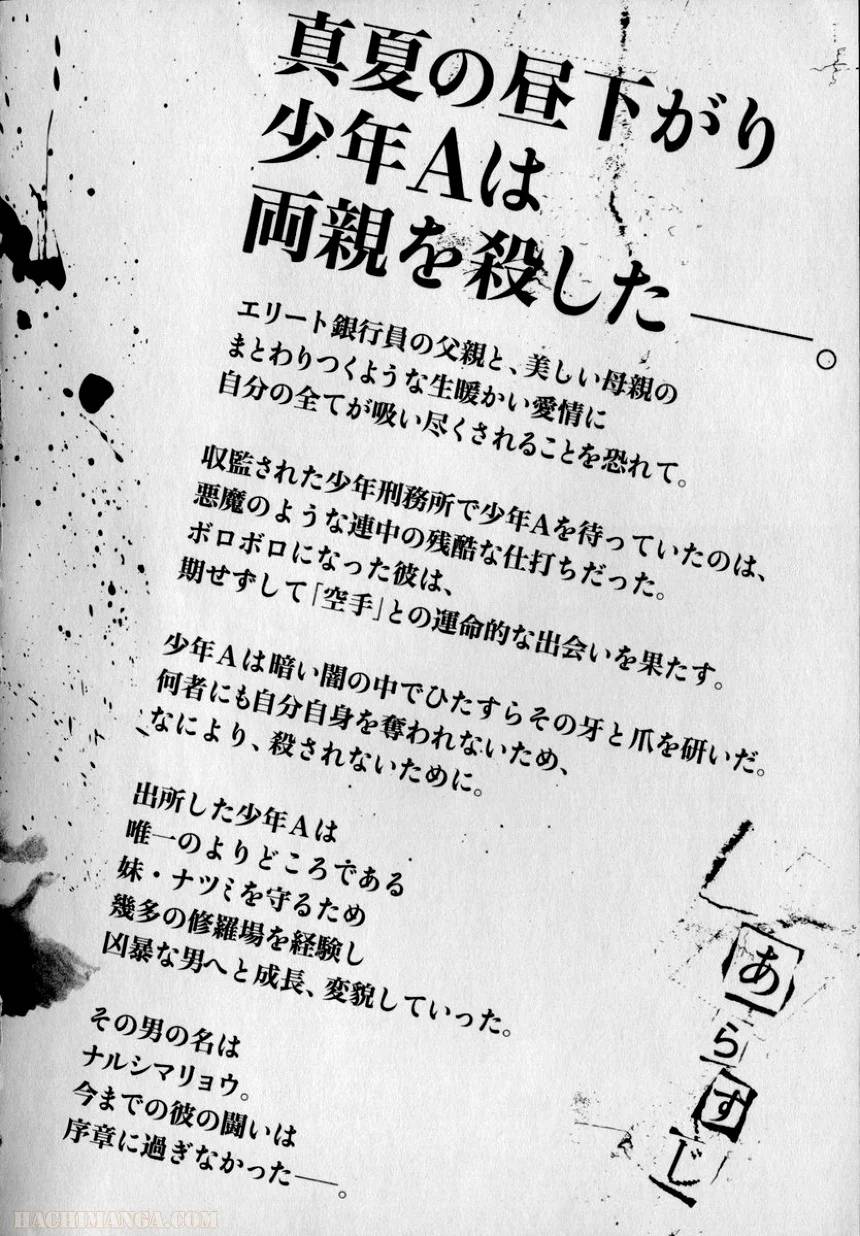 真夏の昼下がり
少年Aは
両親を殺した――。
エリート銀行員の父親と、美しい母親の
まとわりつくような生暖かい愛情に
自分の全てが吸い尽くされることを恐れて。
収監された少年刑務所で少年Aを待っていたのは、
悪魔のような連中の残酷な仕打ちだった。
ボロボロになった彼は、
期せずして「空手」との運命的な出会いを果たす。
少年Aは暗い闇の中でひたすらその牙と爪を研いだ。
何者にも自分自身を奪われないため、
なにより、殺されないために。
出所した少年Aは
唯一のよりどころである
妹・ナツミを守るため
幾多の修羅場を経験し
凶暴な男へと成長、変貌していった。
その男の名は
ナルシマリョウ。
今までの彼の闘いは
序章に過ぎなかった――。
あらすじ
HACHIMANGA.COM